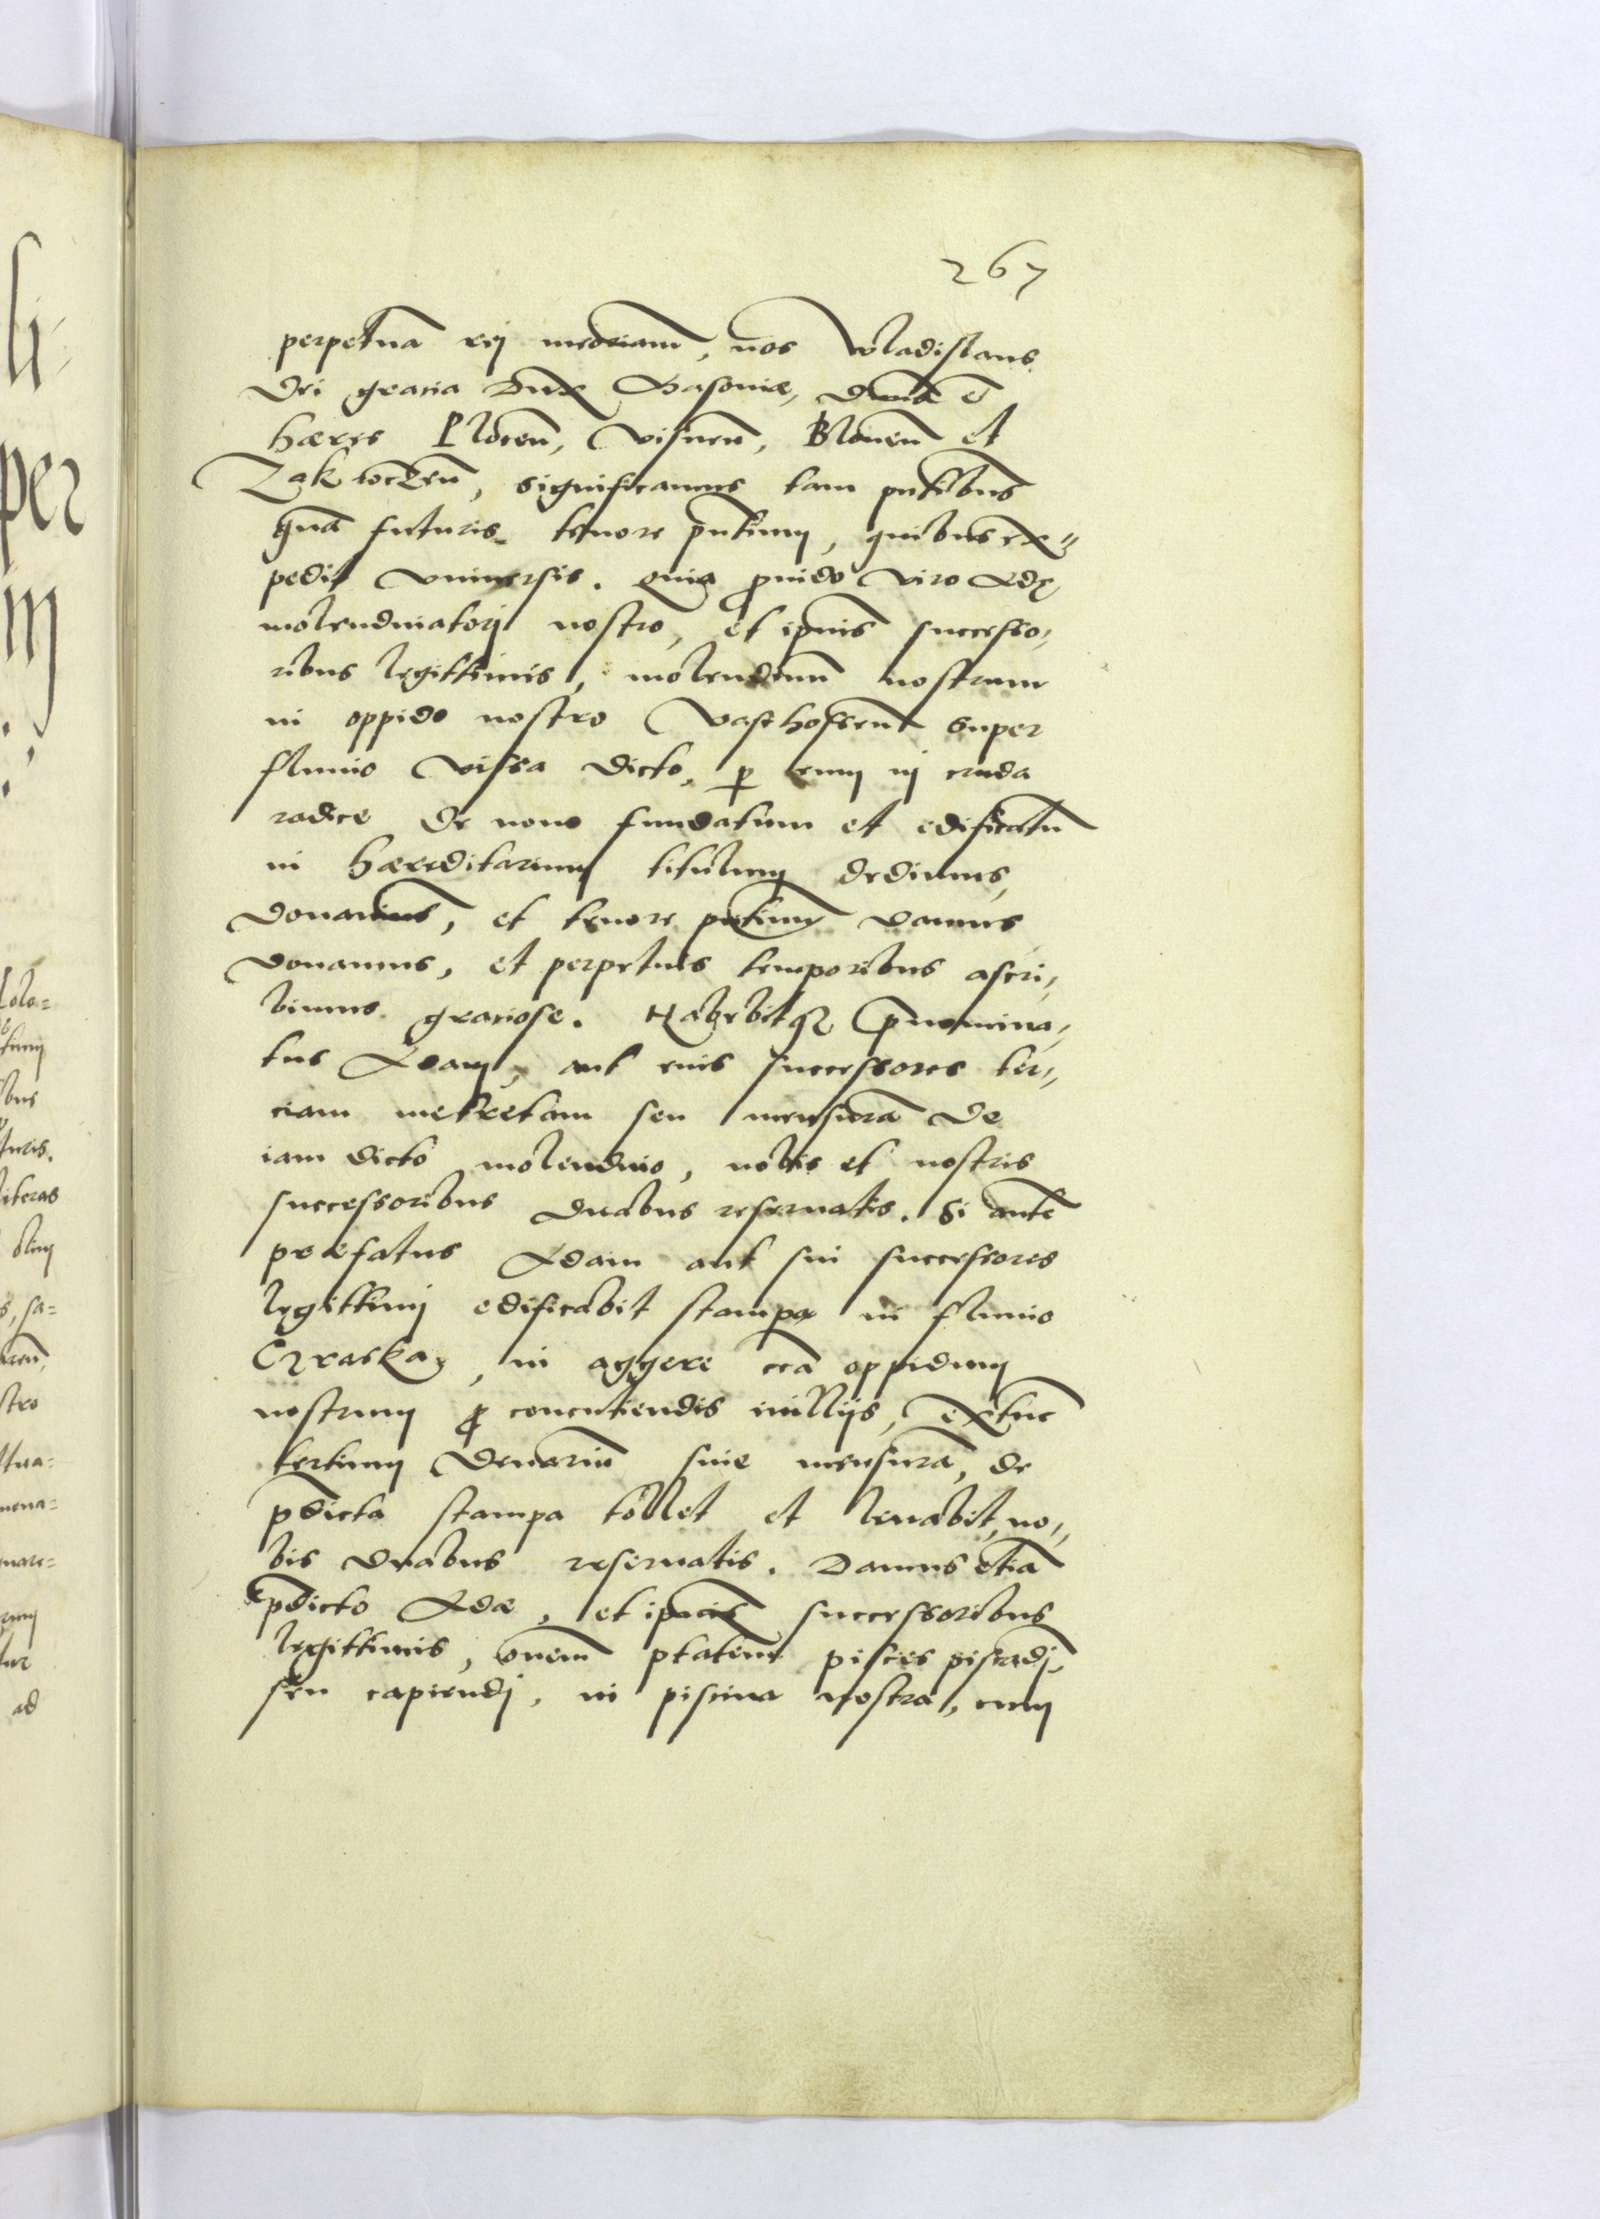 267
perpetuā rej memoriam, nos Vladislaus
Dei gracia Dux Masoviæ, Dn̄s et
hæres Plocen̄, Visnen̄, Blonen̄ et
Zakrocen̄, significamus tam pn̄tibus
quā futuris tenore pn̄tium, quibus ex=
pedit vniuersis. Quia ꝓuido viro Adæ
molendinatorj nostro, et ipius̄ successo,
ribus legittimis, molendinū nostrum
in oppido nostro super
fluuio Vissa dicto, ꝑ eum in cruda
radice de nouo fundatum et edificatū
in hæreditarium titulum dedimus,
donauimus, et tenore pn̄tium damus
donamus, et perpetuis temporibus ascri,,
bimus graciose. Habebitqꝫ p̄nomina,,
tus Adam, aut eius successores ter,,
ciam metretam seu mensurā de
iam dicto molendino, nobis et nostris
successoribus duabus reseruatis. Si autē
præfatus Adam aut sui successores
legittimj edificabit stampā in fluuio
Czraska, in aggere cc̄a oppidum
nostrum ꝓ concutiendis millijs, extunc
tertium denariū siue mensurā, de
p̄dicta stampa tollet et leuabit, no,,
bis duabus reseruatis. Damus etiā
p̄dicto Adæ, et ipius̄ successoribus
legittimis, om̄em ptatem̄ pisces piscādj,
seu capiendj, in piscina nostra, cum